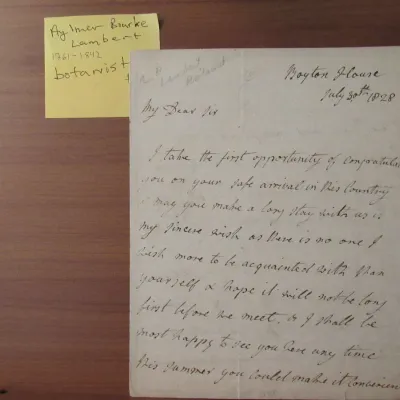 Aylmer Bourke
Lambert
1761-1842
botanist
Boyton House
July 20th 1828
My Dear Sir
I take the first opportunity of congratula
you on your safe arrival in this Country
& may you make a long stay with us is
my sincere wish as there is no one I
wish more to be acquainted with than
yourself & hope it will not be long
first before we meet, & I shall be
most happy to see you here any time
this summer you could make it convenien